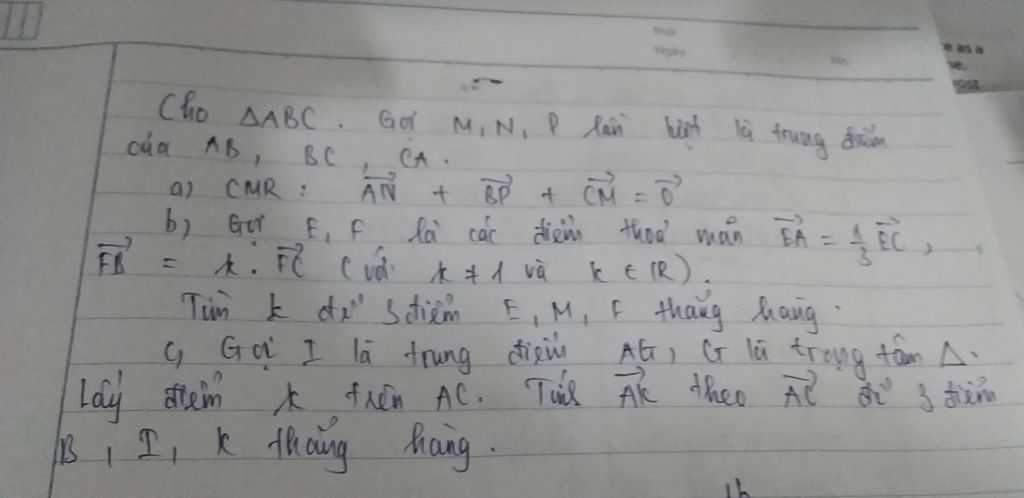 Thứ
Ngày
No.
e as a
ne.
Cho ΔABC. Gọi M, N, P lần lượt là trung điểm
của AB, BC, CA.
a) CMR: $\overrightarrow{AN} + \overrightarrow{BP} + \overrightarrow{CM} = \overrightarrow{0}$
b) Gọi E, F là các điểm thoả mãn $\overrightarrow{EA} = \frac{1}{3}\overrightarrow{EC}$,
$\overrightarrow{FB} = k.\overrightarrow{FC}$ (với k ≠ 1 và k ∈ ℝ).
Tìm k để 3 điểm E, M, F thẳng hàng.
c, Gọi I là trung điểm AG, G là trọng tâm Δ.
Lấy điểm K trên AC. Tính $\overrightarrow{AK}$ theo $\overrightarrow{AC}$ để 3 điểm
B, I, K thẳng hàng.